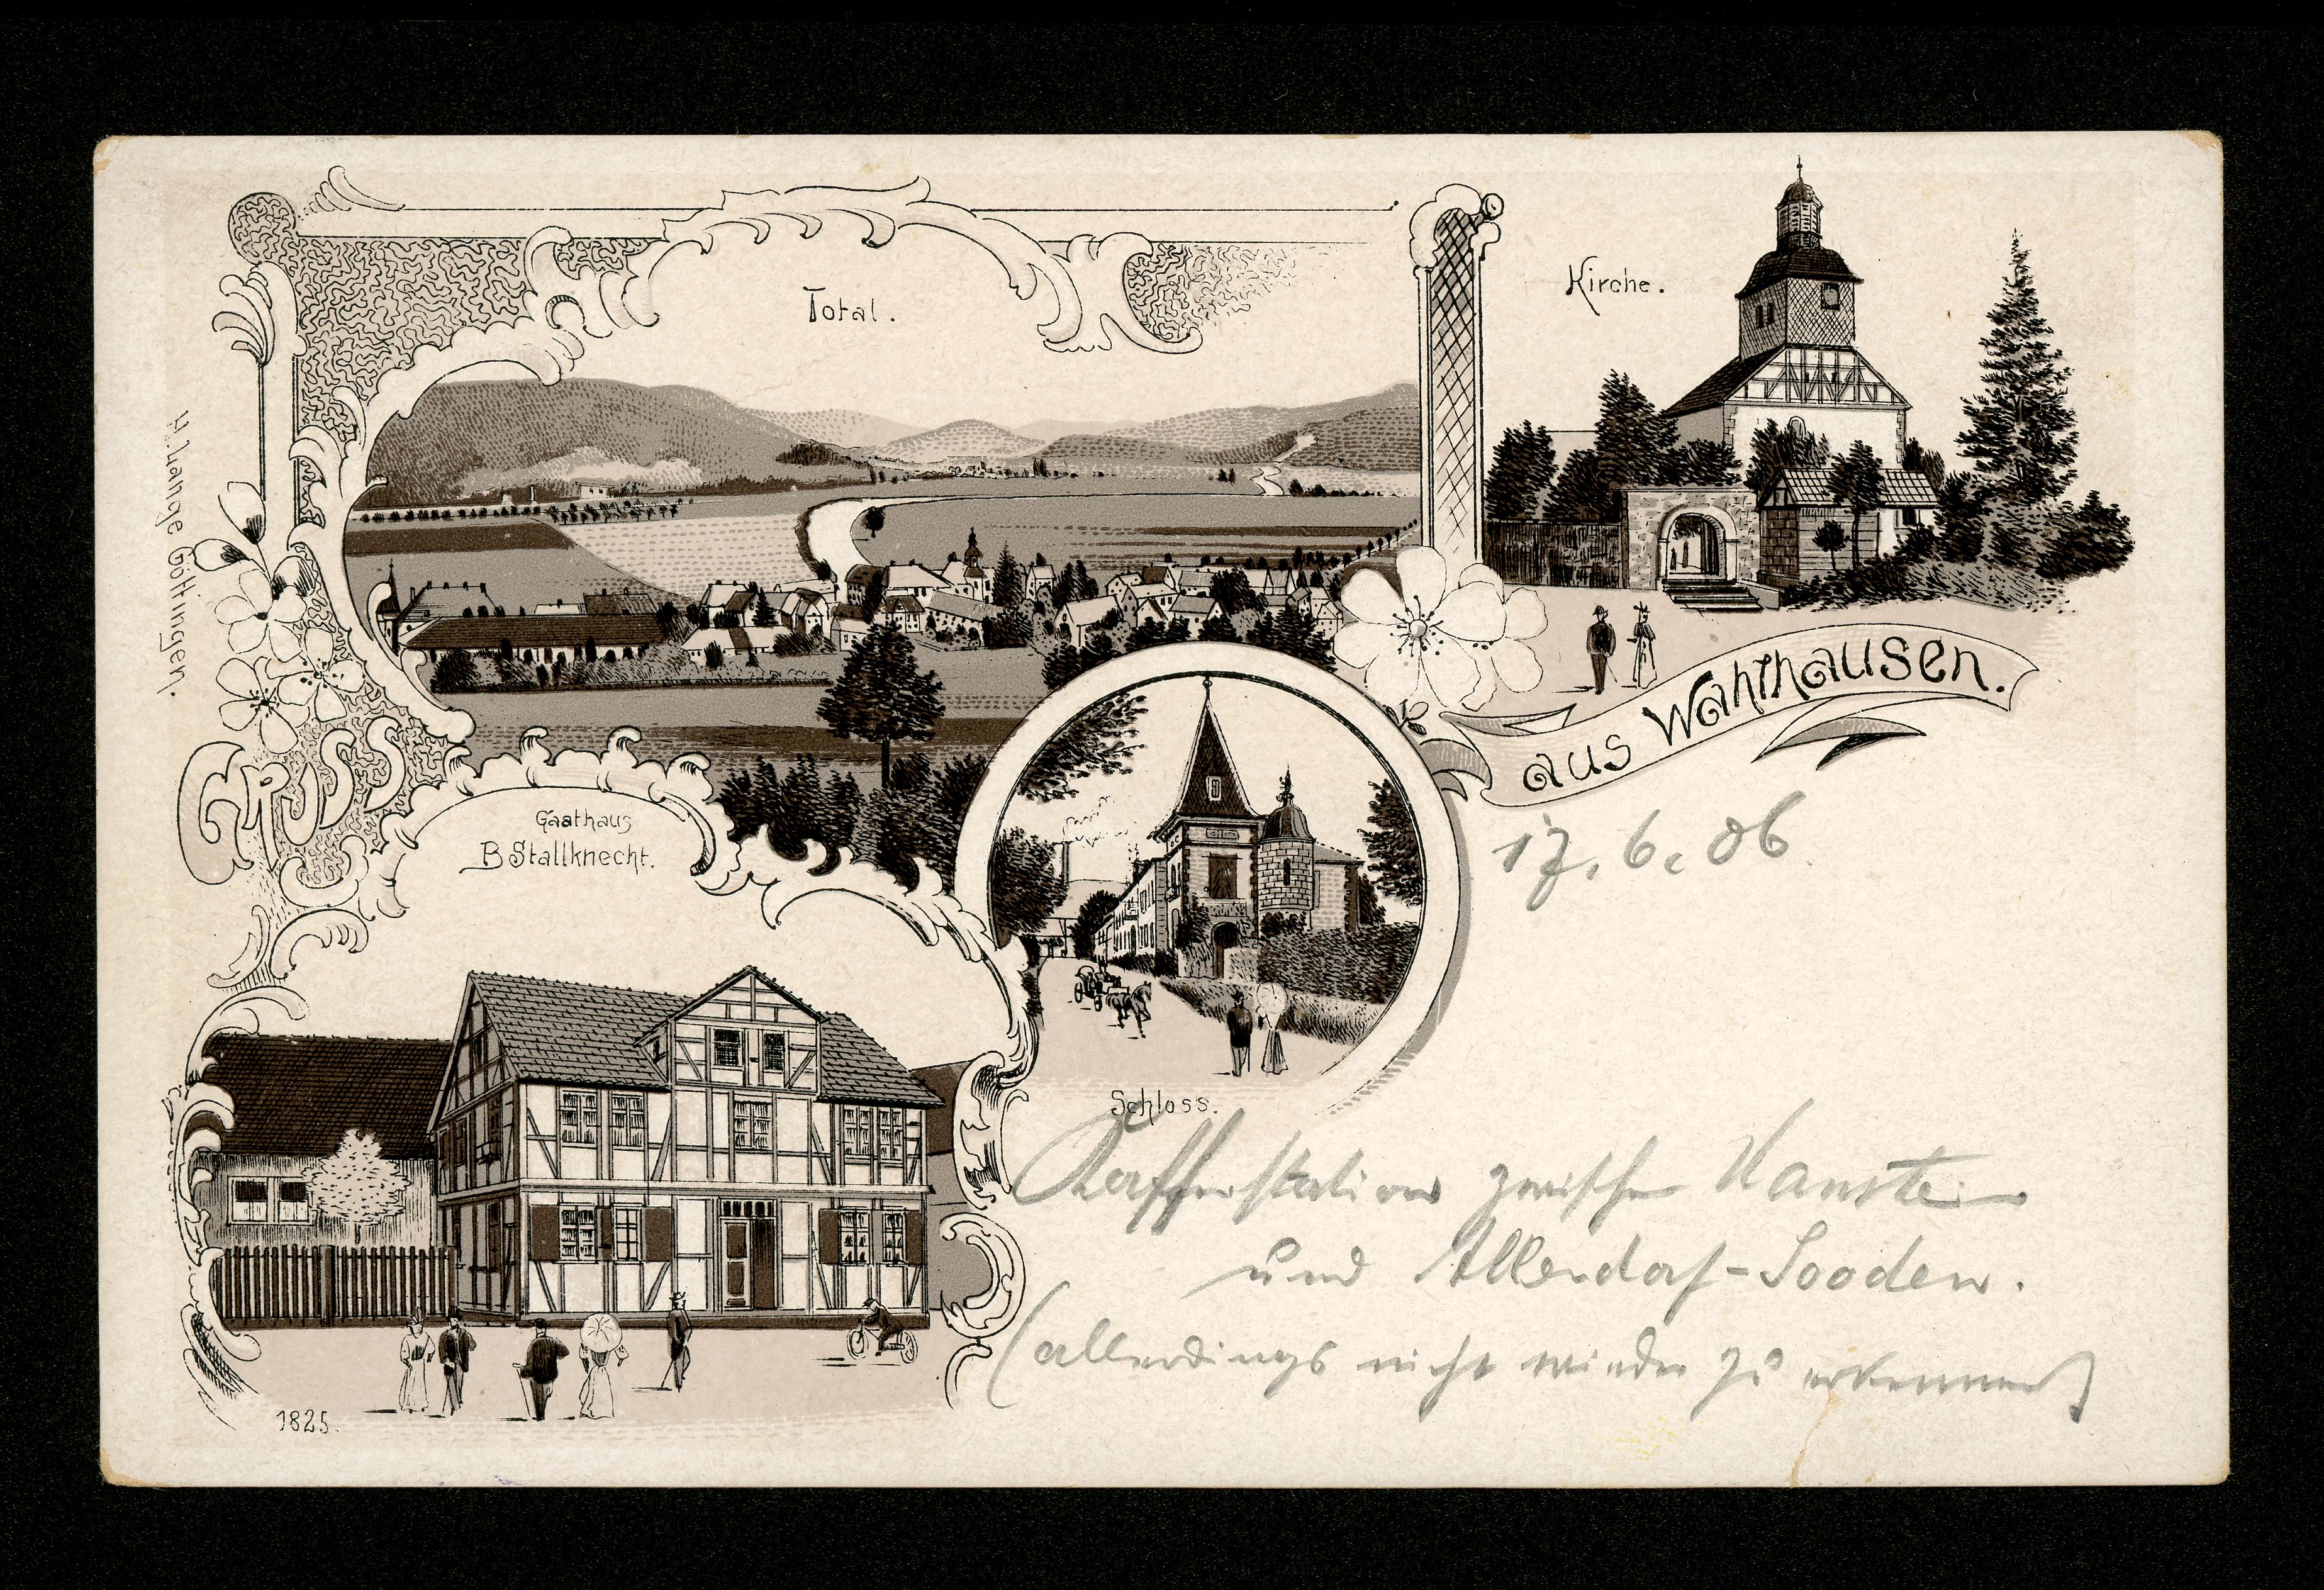 Total.
Kirche.
H. Lange Göttingen.
GRUSS
aus Wahlhausen.
Gasthaus
B Stallknecht.
17. 6. 06.
Schloss.
Kaffeestation zwischen Hanstein
und Allendorf-Sooden.
(allerdings nicht wieder zu erkennen)
1825.